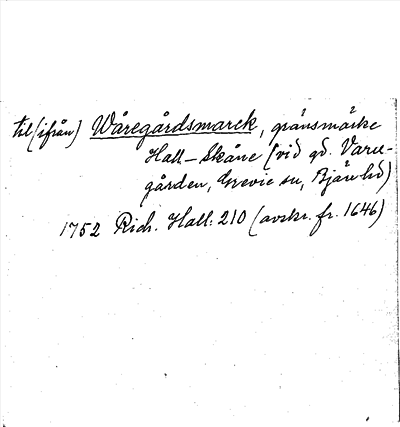 til (ifrån) Wåregårdsmarek, gränsmärke
Hall-Skåne (vid gd. Varu-
gården, Grevie sn, Bjäre hd)
1752 Rich. Hall: 210 (avskr. fr. 1646)